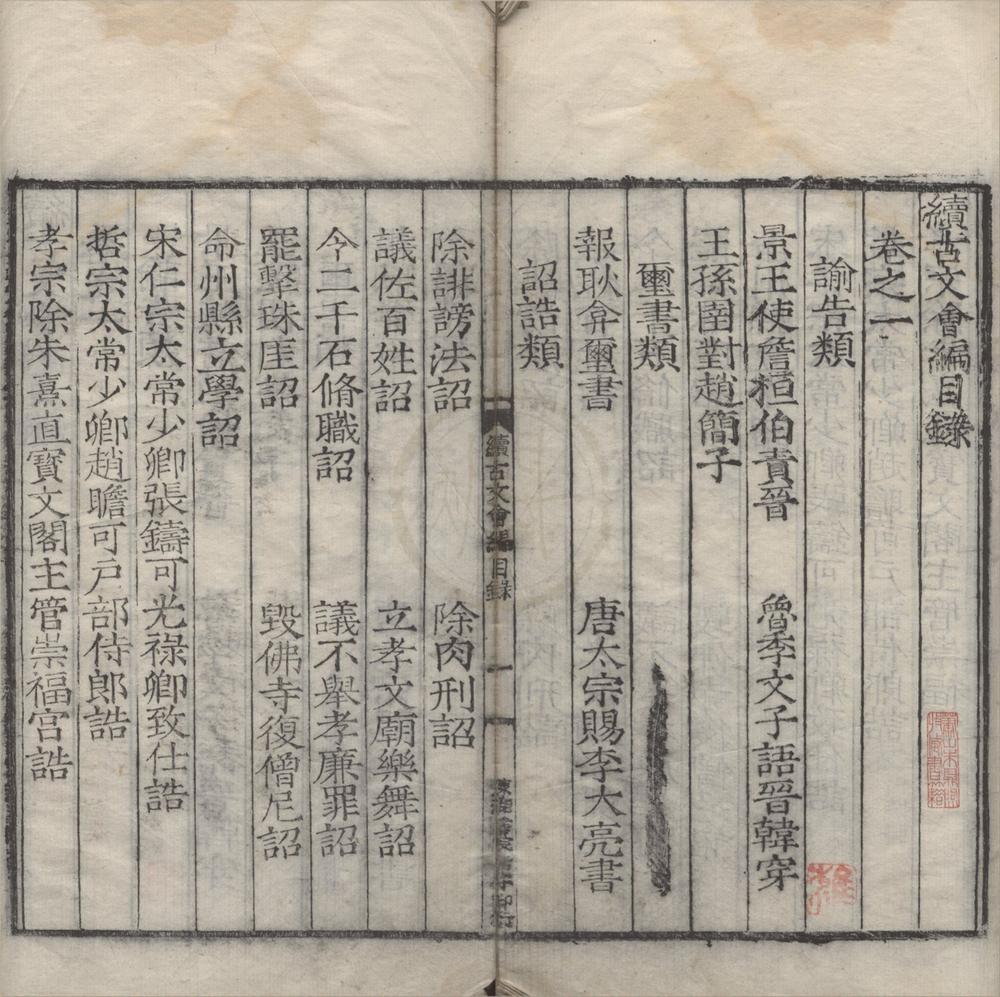 續古文會編目錄
卷之一
諭告類
景王使詹桓伯責晉　魯季文子語晉韓穿
王孫圉對趙簡子
璽書類
報耿弇璽書　唐太宗賜李大亮書
詔誥類
續古文會編目錄　一
除誹謗法詔　除肉刑詔
議佐百姓詔　立孝文廟樂舞詔
令二千石脩職詔　議不舉孝廉罪詔
罷擊珠厓詔　毀佛寺復僧尼詔
命州縣立學詔
宋仁宗太常少卿張鑄可光祿卿致仕誥
哲宗太常少卿趙瞻可户部侍郎誥
孝宗除朱熹直寶文閣主管崇福宮誥